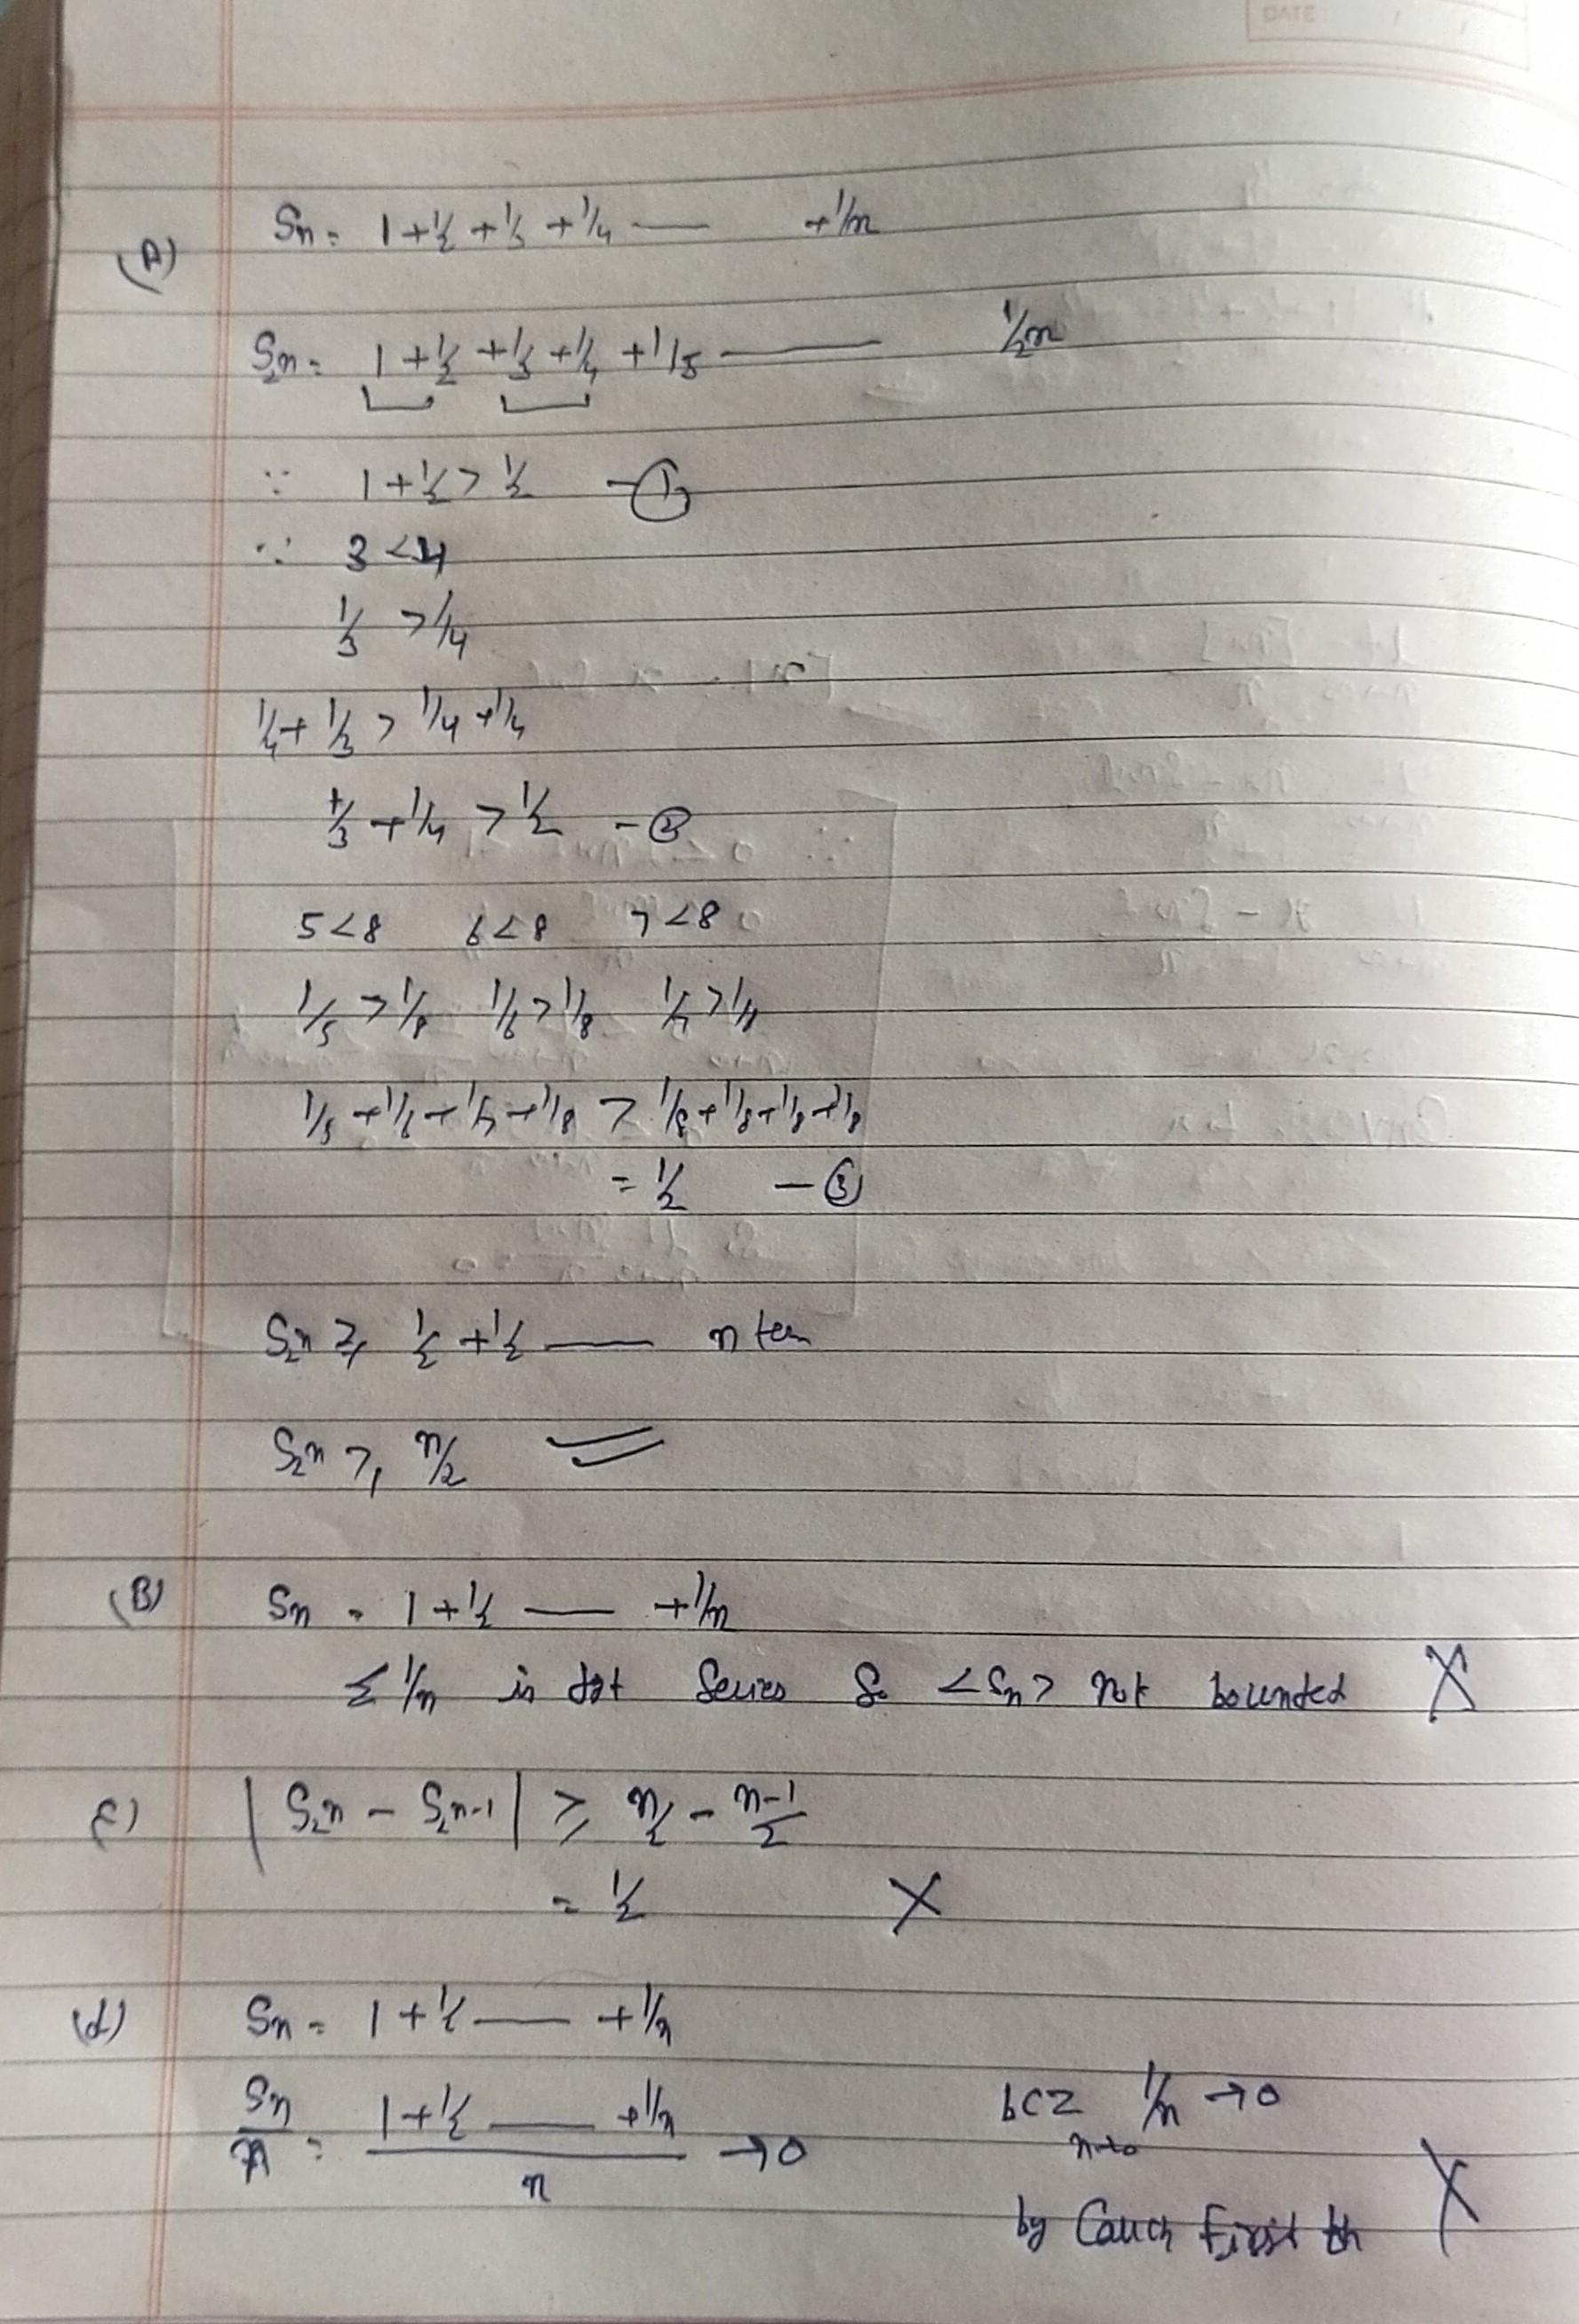 DATE
(A) Sn = 1 + 1/2 + 1/3 + 1/4 — + 1/n
S2n = 1 + 1/2 + 1/3 + 1/4 + 1/5 — 1/2n
∵ 1 + 1/2 > 1/2 - ①
∵ 3 < 4
1/3 > 1/4
1/4 + 1/3 > 1/4 + 1/4
1/3 + 1/4 > 1/2 - ②
5 < 8 6 < 8 7 < 8
1/5 > 1/8 1/6 > 1/8 1/7 > 1/8
1/5 + 1/6 + 1/7 + 1/8 > 1/8 + 1/8 + 1/8 + 1/8
= 1/2 - ③
S2n ≥ 1/2 + 1/2 — n
S2n ≥ n/2
(B) Sn = 1 + 1/2 — + 1/n
Σ 1/n is series So <Sn> not bounded X
| S2n - S2n-1 | ≥ n/2 - n-1/2
= 1/2 X
(d) Sn = 1 + 1/2 — + 1/n
Sn/n = 1 + 1/2 — + 1/n / n → 0 bcz 1/n → 0
by First th X